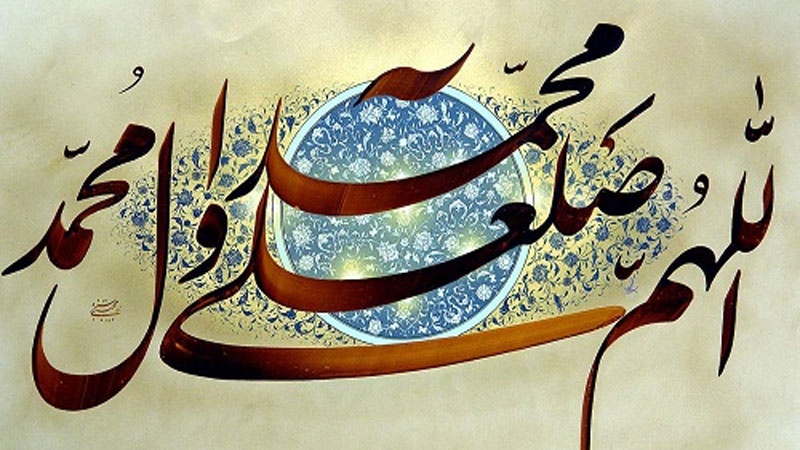 اللّهم صل علی محمّد و آل محمّد